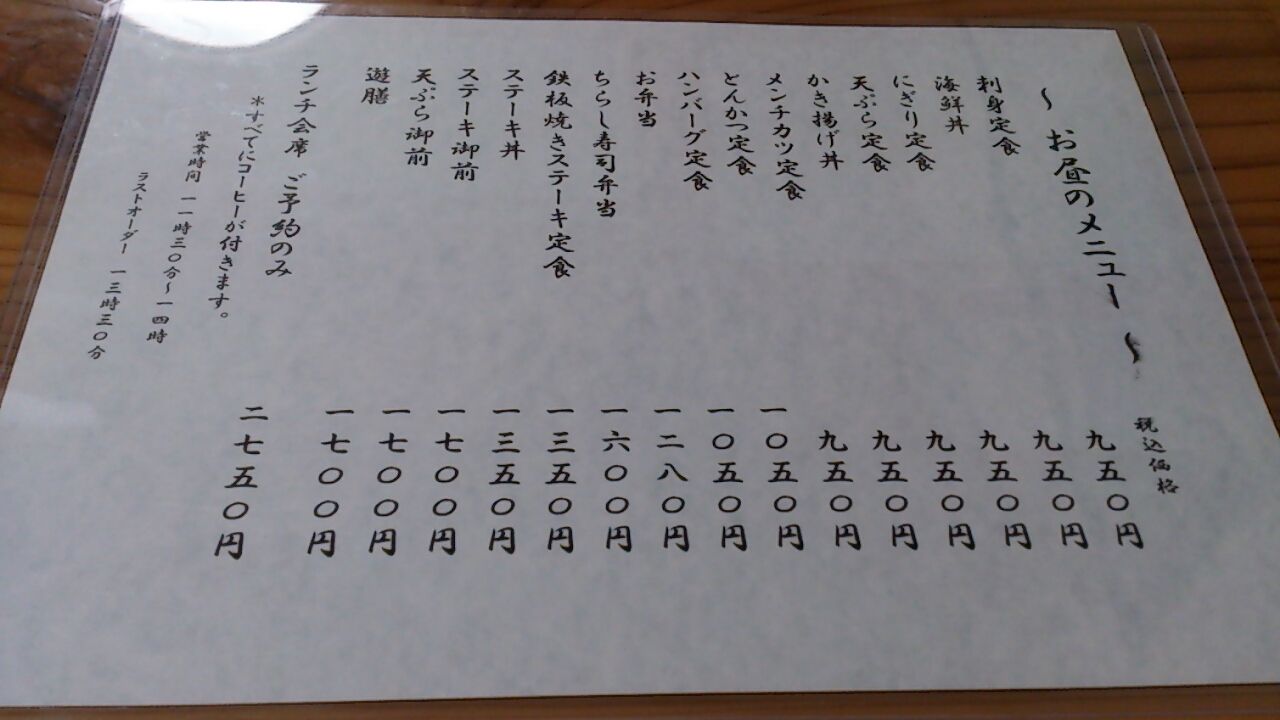 ～ お昼のメニュー ～
税込価格
刺身定食 九五〇円
海鮮丼 九五〇円
にぎり定食 九五〇円
天ぷら定食 九五〇円
かき揚げ丼 九五〇円
メンチカツ定食 九五〇円
とんかつ定食 一〇五〇円
ハンバーグ定食 一〇五〇円
お弁当 一二八〇円
ちらし寿司弁当 一六〇〇円
鉄板焼きステーキ定食 一三五〇円
ステーキ丼 一三五〇円
ステーキ御前 一七〇〇円
天ぷら御前 一七〇〇円
遊膳 一七〇〇円
ランチ会席 ご予約のみ 二七五〇円
＊すべてにコーヒーが付きます。
営業時間 一一時三〇分～一四時
ラストオーダー 一三時三〇分